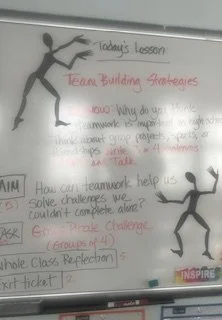 Today's Lesson
Team Building Strategies
Now: Why do you think
teamwork is important in high school
Think about group projects, sports, or
friendships. write 3-4 sentences
and Talk
AIM
(5)
How can teamwork help us
solve challenges we
couldn't complete alone?
TASK
Puzzle Challenge
(Groups of 4)
Whole Class Reflection 5
Exit ticket 2
INSPIRE